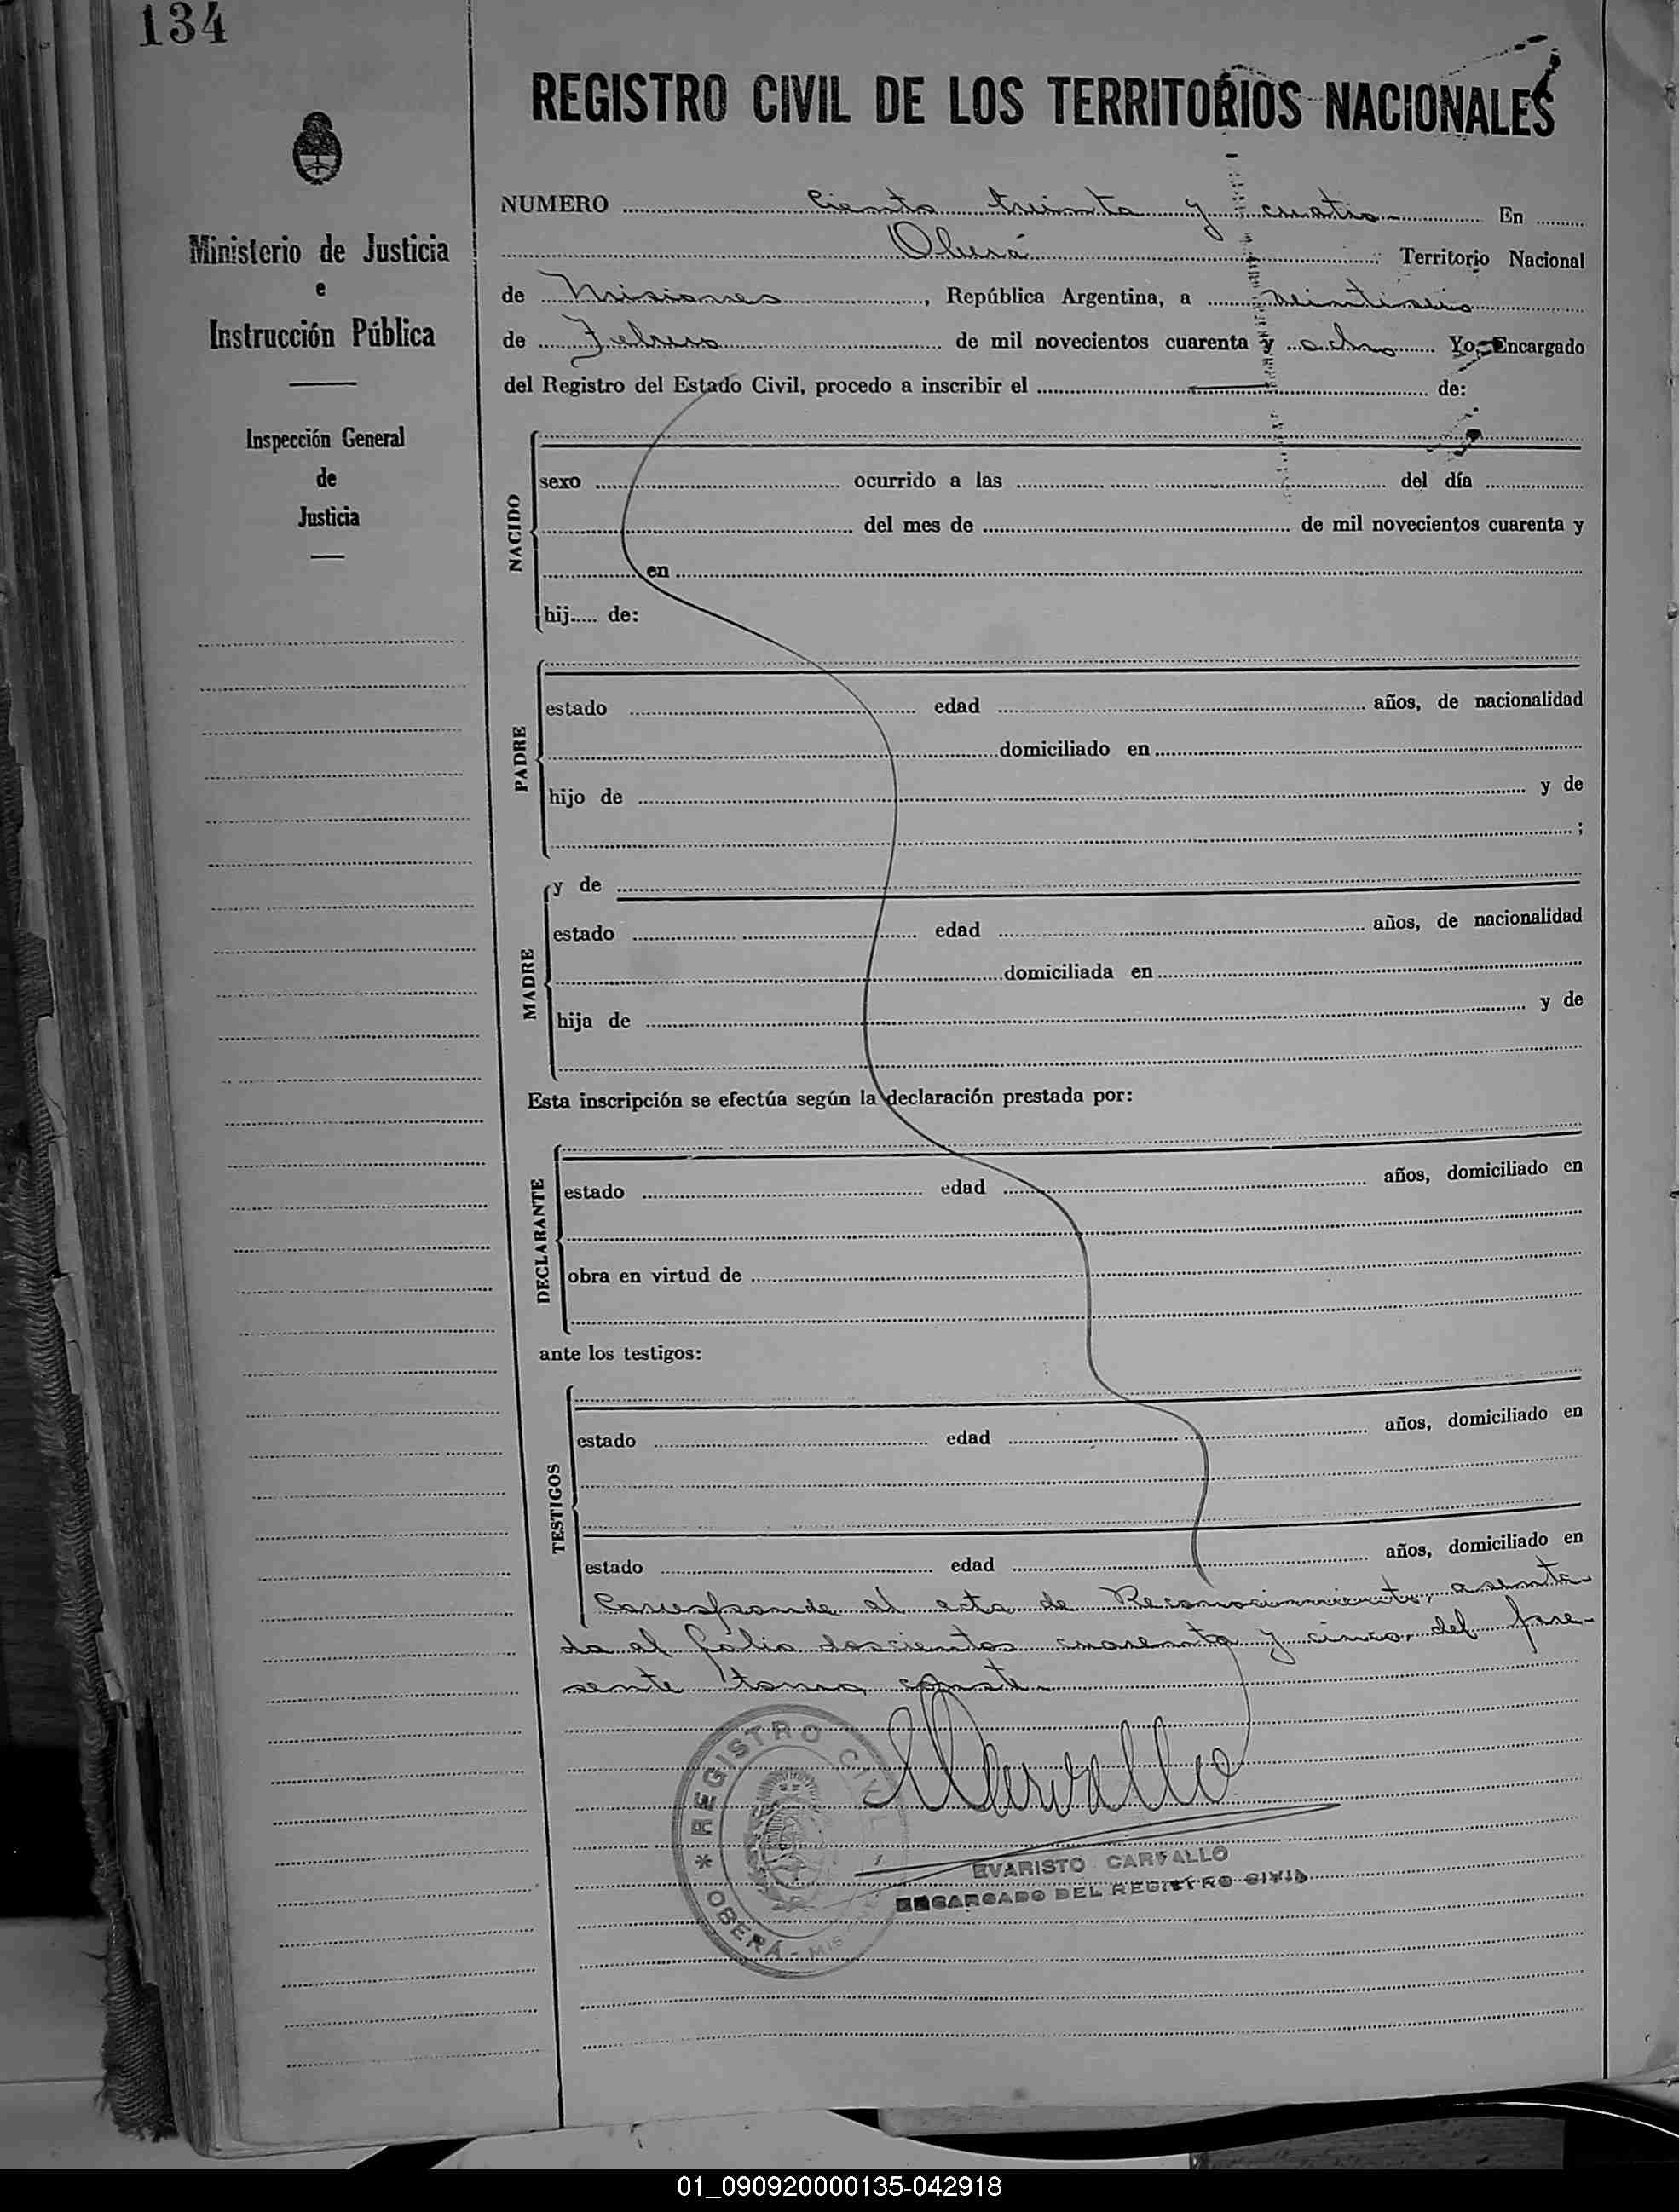 134
REGISTRO CIVIL DE LOS TERRITORIOS NACIONALES
Ministerio de Justicia
e
Instrucción Pública
Inspección General
de
Justicia
NUMERO Ciento treinta y cuatro En
Oberá Territorio Nacional
de Misiones, República Argentina, a veintiseis
de Febrero de mil novecientos cuarenta y ocho Yo, Encargado
del Registro del Estado Civil, procedo a inscribir el de:
NACIDO
sexo ocurrido a las del día
del mes de de mil novecientos cuarenta y
en
hij de:
PADRE
estado edad años, de nacionalidad
domiciliado en
hijo de y de
;
MADRE
y de
estado edad años, de nacionalidad
domiciliada en
hija de y de
Esta inscripción se efectúa según la declaración prestada por:
DECLARANTE
estado edad años, domiciliado en
obra en virtud de
ante los testigos:
TESTIGOS
estado edad años, domiciliado en
estado edad años, domiciliado en
Corresponde al acta de Reconocimiento, asenta-
da al folio doscientos cuarenta y cinco, del pre-
sente tomo, conste.
REGISTRO CIVIL
* OBERÁ - MIS
EVARISTO CARVALLO
ENCARGADO DEL REGISTRO CIVIL
01_090920000135-042918